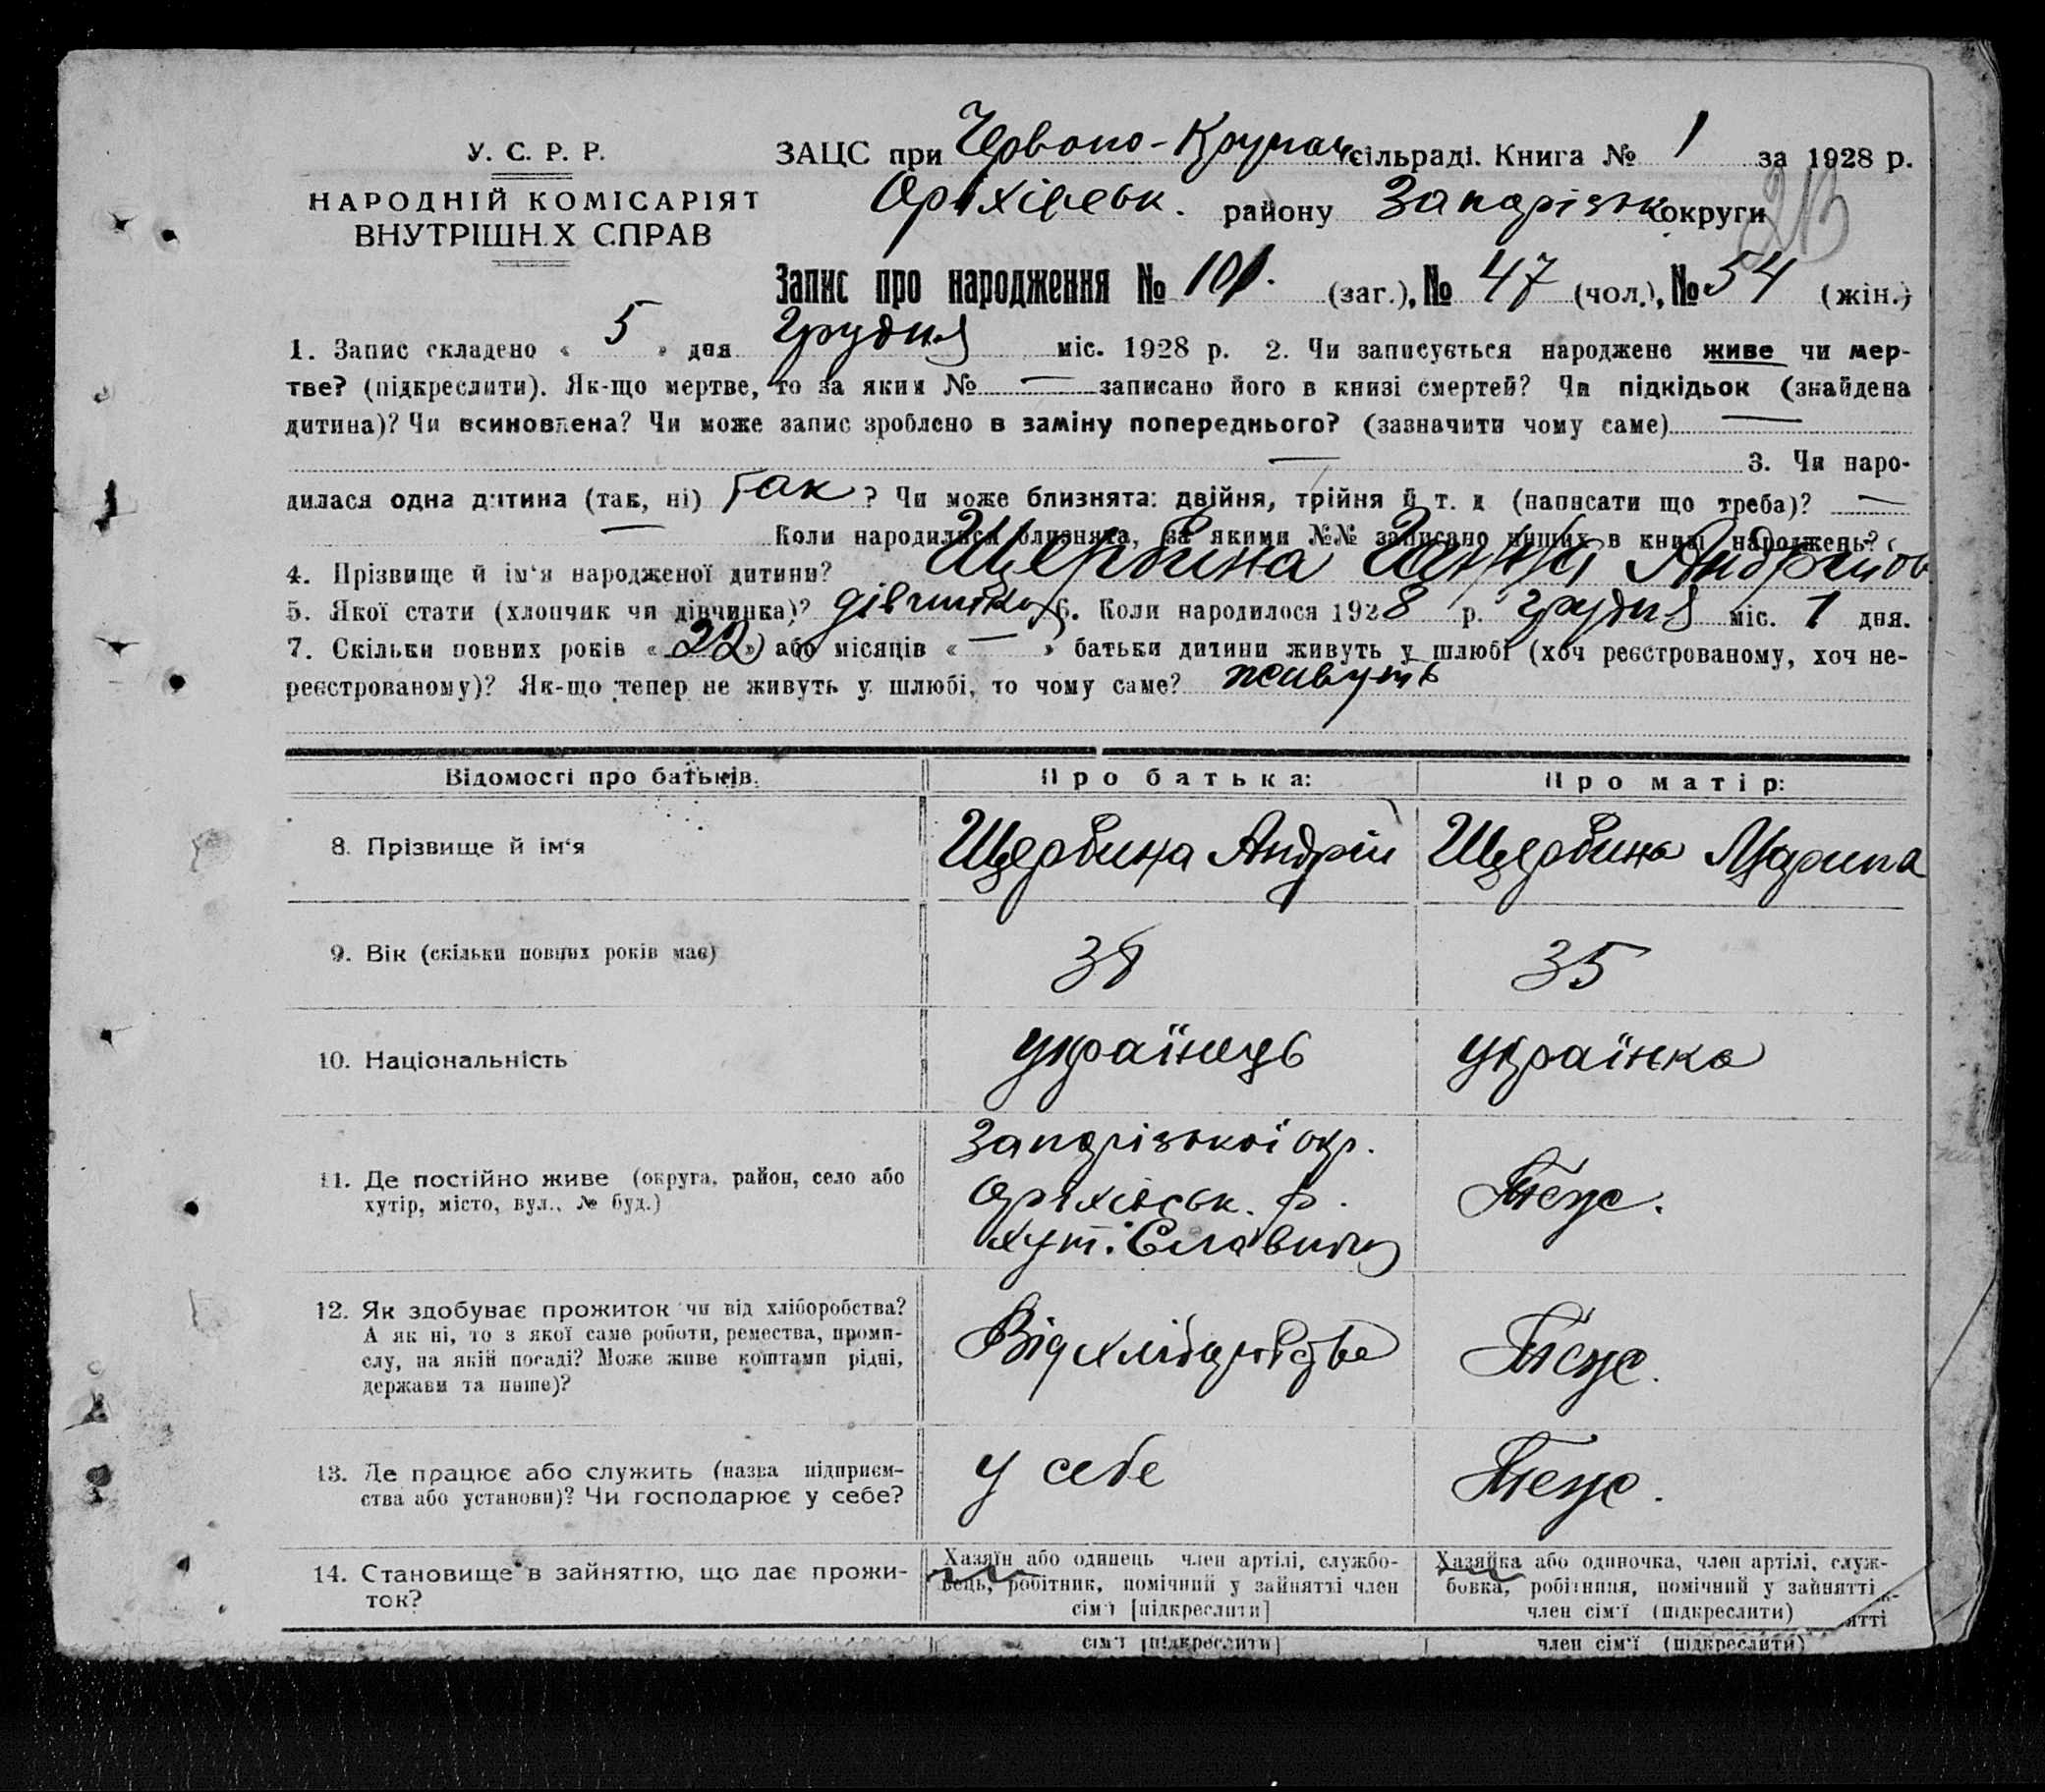 У. С. Р. Р.
НАРОДНІЙ КОМІСАРІЯТ
ВНУТРІШН.Х СПРАВ
ЗАЦС при Червоно- сільраді. Книга № 1 за 1928 р.
Оріхівськ. району Запорізьк округи
Запис про народження № 101. (заг.), № 47 (чол.), № 54 (жін.)
1. Запис складено « 5 » дня Грудня міс. 1928 р. 2. Чи записується народжене живе чи мер-
тве? (підкреслити). Як-що мертве, то за яким № — записано його в книзі смертей? Чи підкідьок (знайдена
дитина)? Чи всиновлена? Чи може запис зроблено в заміну попереднього? (зазначити чому саме) —
— 3. Чи наро-
дилася одна дитина (так, ні) Так ? Чи може близнята: двійня, трійня й т. д (написати що треба)? —
— Коли народилися близнята, за якими №№ записано инших в книзі народжень?
4. Прізвище й ім'я народженої дитини? Щербина Ганна Андрійов
5. Якої стати (хлопчик чи дівчинка)? дівчинка 6. Коли народилося 1928 р. грудня міс. 1 дня.
7. Скільки повних років « 22 » або місяців « — » батьки дитини живуть у шлюбі (хоч реєстрованому, хоч не-
реєстрованому)? Як-що тепер не живуть у шлюбі, то чому саме? живуть
Відомості про батьків. Про батька: Про матір:
8. Прізвище й ім'я Щербина Андрій Щербина Марина
9. Вік (скільки повних років має) 38 35
10. Національність українець українка
11. Де постійно живе (округа, район, село або
хутір, місто, вул., № буд.)
Запорізької окр.
Оріхівськ. р.
хут.
Теж.
12. Як здобуває прожиток чи від хліборобства?
А як ні, то з якої саме роботи, ремества, проми-
слу, на якій посаді? Може живе коштами рідні,
держави та инше)?
Від хліборобства
Теж.
13. Де працює або служить (назва підприєм-
ства або установи)? Чи господарює у себе?
у себе
Теж.
14. Становище в зайняттю, що дає прожи-
ток?
Хазяїн або одинець член артілі, службо-
вець, робітник, помічний у зайнятті член
сім'ї [підкреслити]
Хазяйка або одиночка, член артілі, служ-
бовка, робітниця, помічний у зайнятті
член сім'ї (підкреслити)
ятті
сім'ї [підкреслити] член сім'ї (підкреслити)